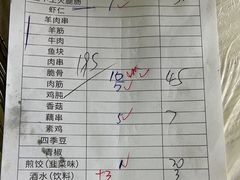 虾仁
羊肉串
羊筋
牛肉
鱼块
肉串 195
脆骨 45
肉筋 7
鸡肫
香菇
藕串 5 7
素鸡
四季豆
青椒
煎饺(韭菜味) 20
酒水(饮料) +3 3